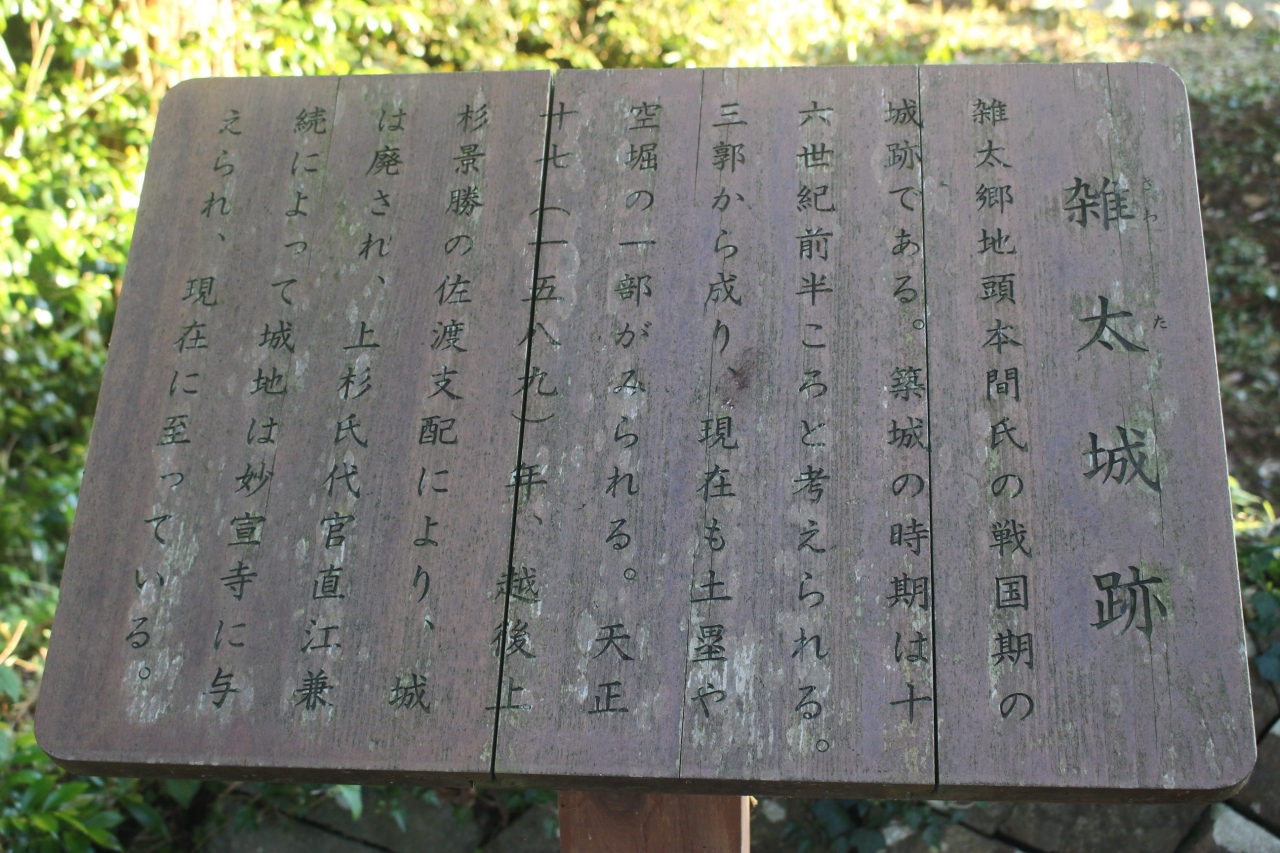 雑太城跡
さわ た
雑太郷地頭本間氏の戦国期の
城跡である。築城の時期は十
六世紀前半ころと考えられる。
三郭から成り、現在も土塁や
空堀の一部がみられる。天正
十七（一五八九）年、越後上
杉景勝の佐渡支配により、城
は廃され、上杉氏代官直江兼
続によって城地は妙宣寺に与
えられ、現在に至っている。